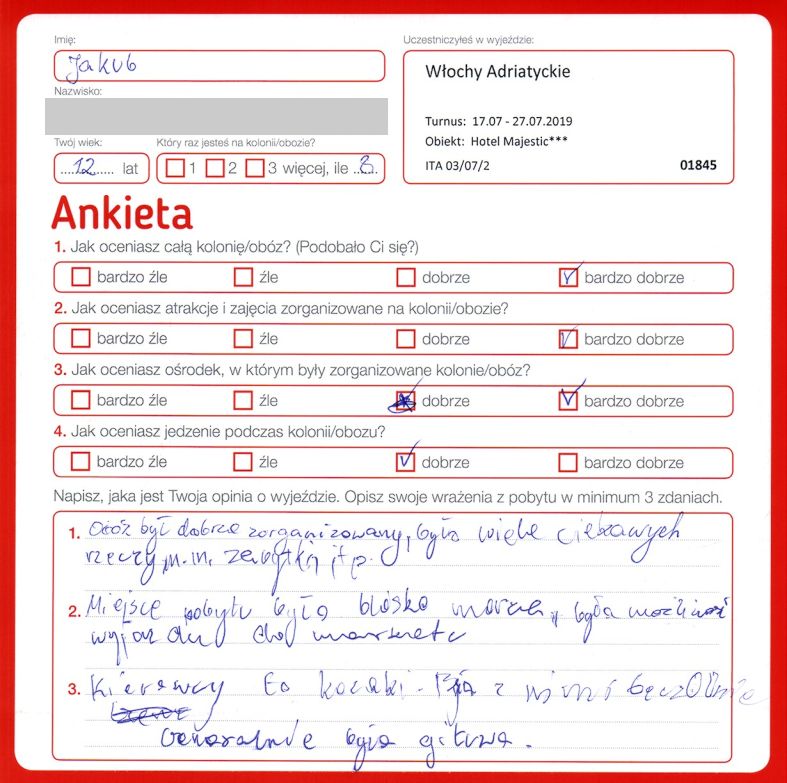 Imię:
Jakub
Nazwisko:
Twój wiek:
12 lat
Który raz jesteś na kolonii/obozie?
1 2 3 więcej, ile 8
Uczestniczyłeś w wyjeździe:
Włochy Adriatyckie
Turnus: 17.07 - 27.07.2019
Obiekt: Hotel Majestic***
ITA 03/07/2 01845
Ankieta
1. Jak oceniasz całą kolonię/obóz? (Podobało Ci się?)
bardzo źle źle dobrze bardzo dobrze
2. Jak oceniasz atrakcje i zajęcia zorganizowane na kolonii/obozie?
bardzo źle źle dobrze bardzo dobrze
3. Jak oceniasz ośrodek, w którym były zorganizowane kolonie/obóz?
bardzo źle źle dobrze bardzo dobrze
4. Jak oceniasz jedzenie podczas kolonii/obozu?
bardzo źle źle dobrze bardzo dobrze
Napisz, jaka jest Twoja opinia o wyjeździe. Opisz swoje wrażenia z pobytu w minimum 3 zdaniach.
1. Obóz był dobrze zorganizowany, było wiele ciekawych
rzeczy m.in. zabytki itp.
2. Miejsce pobytu było blisko morza, była możliwość
wyjazdu do marketu
3. Kierowcy to kozaki -
z nimi
Generalnie była gitwa.